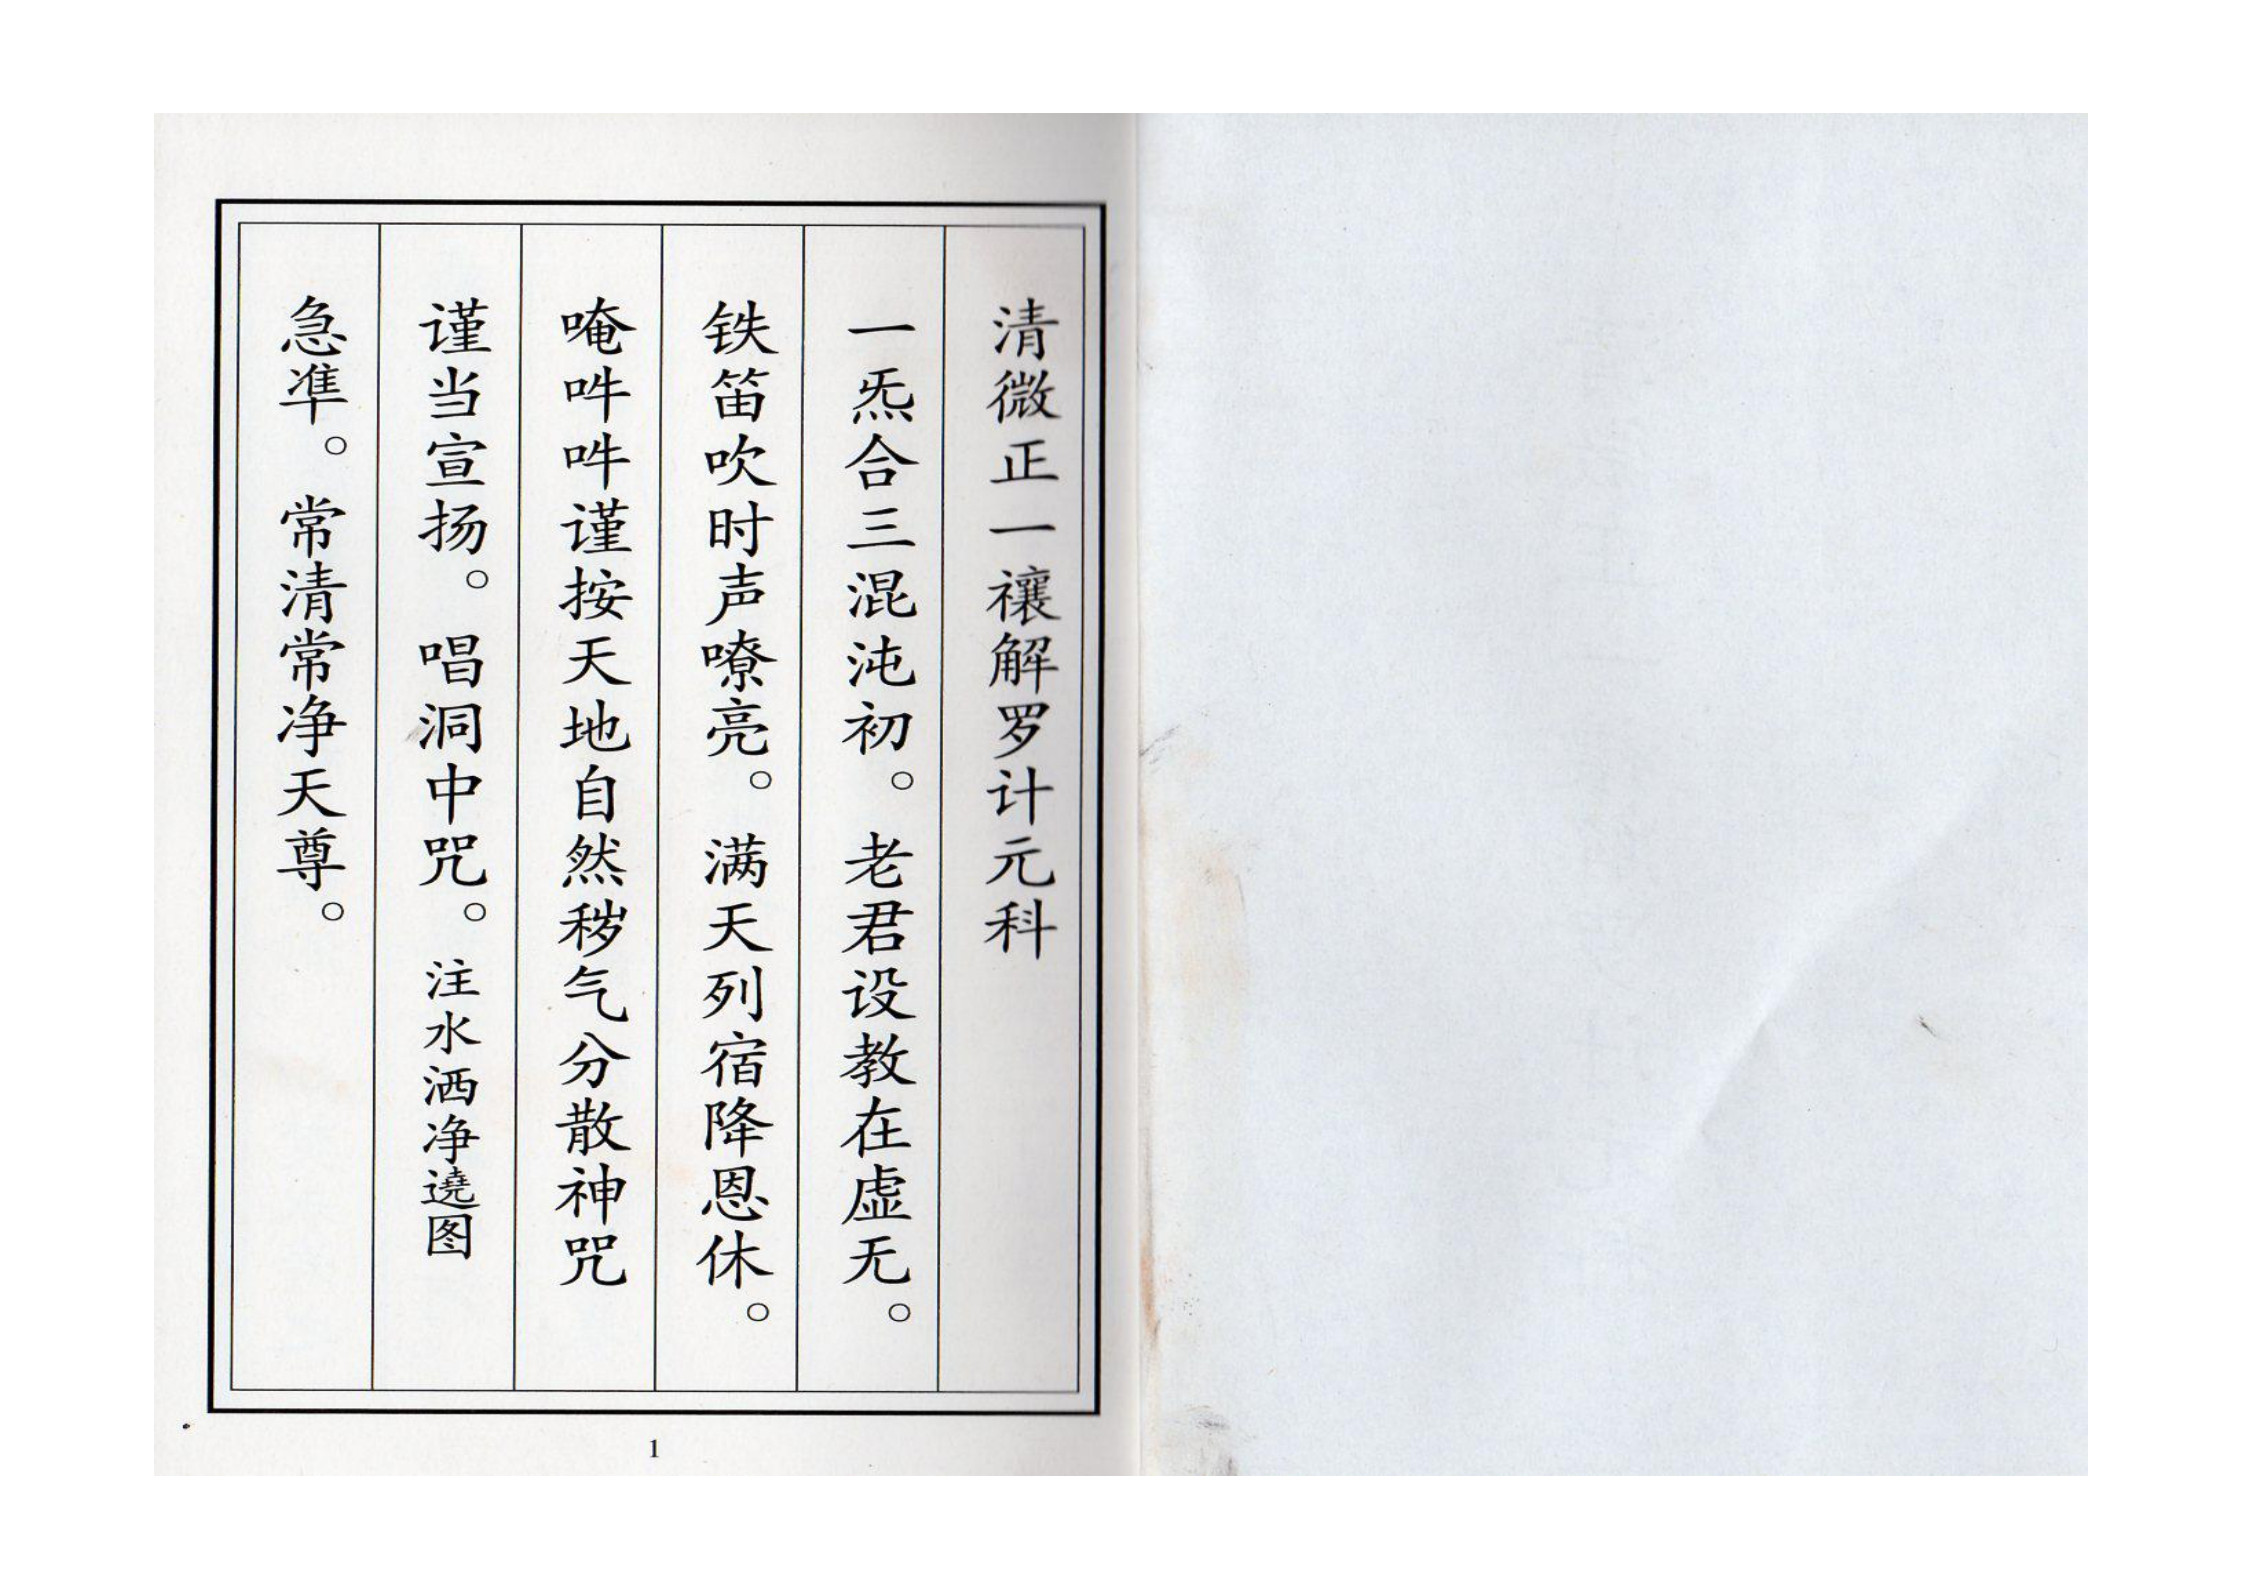 清微正一禳解罗计元科
一炁合三混沌初。老君设教在虚无。
铁笛吹时声嘹亮。满天列宿降恩休。
唵吽吽谨按天地自然秽气分散神咒
谨当宣扬。唱洞中咒。注水洒净遶图
急準。常清常净天尊。
1